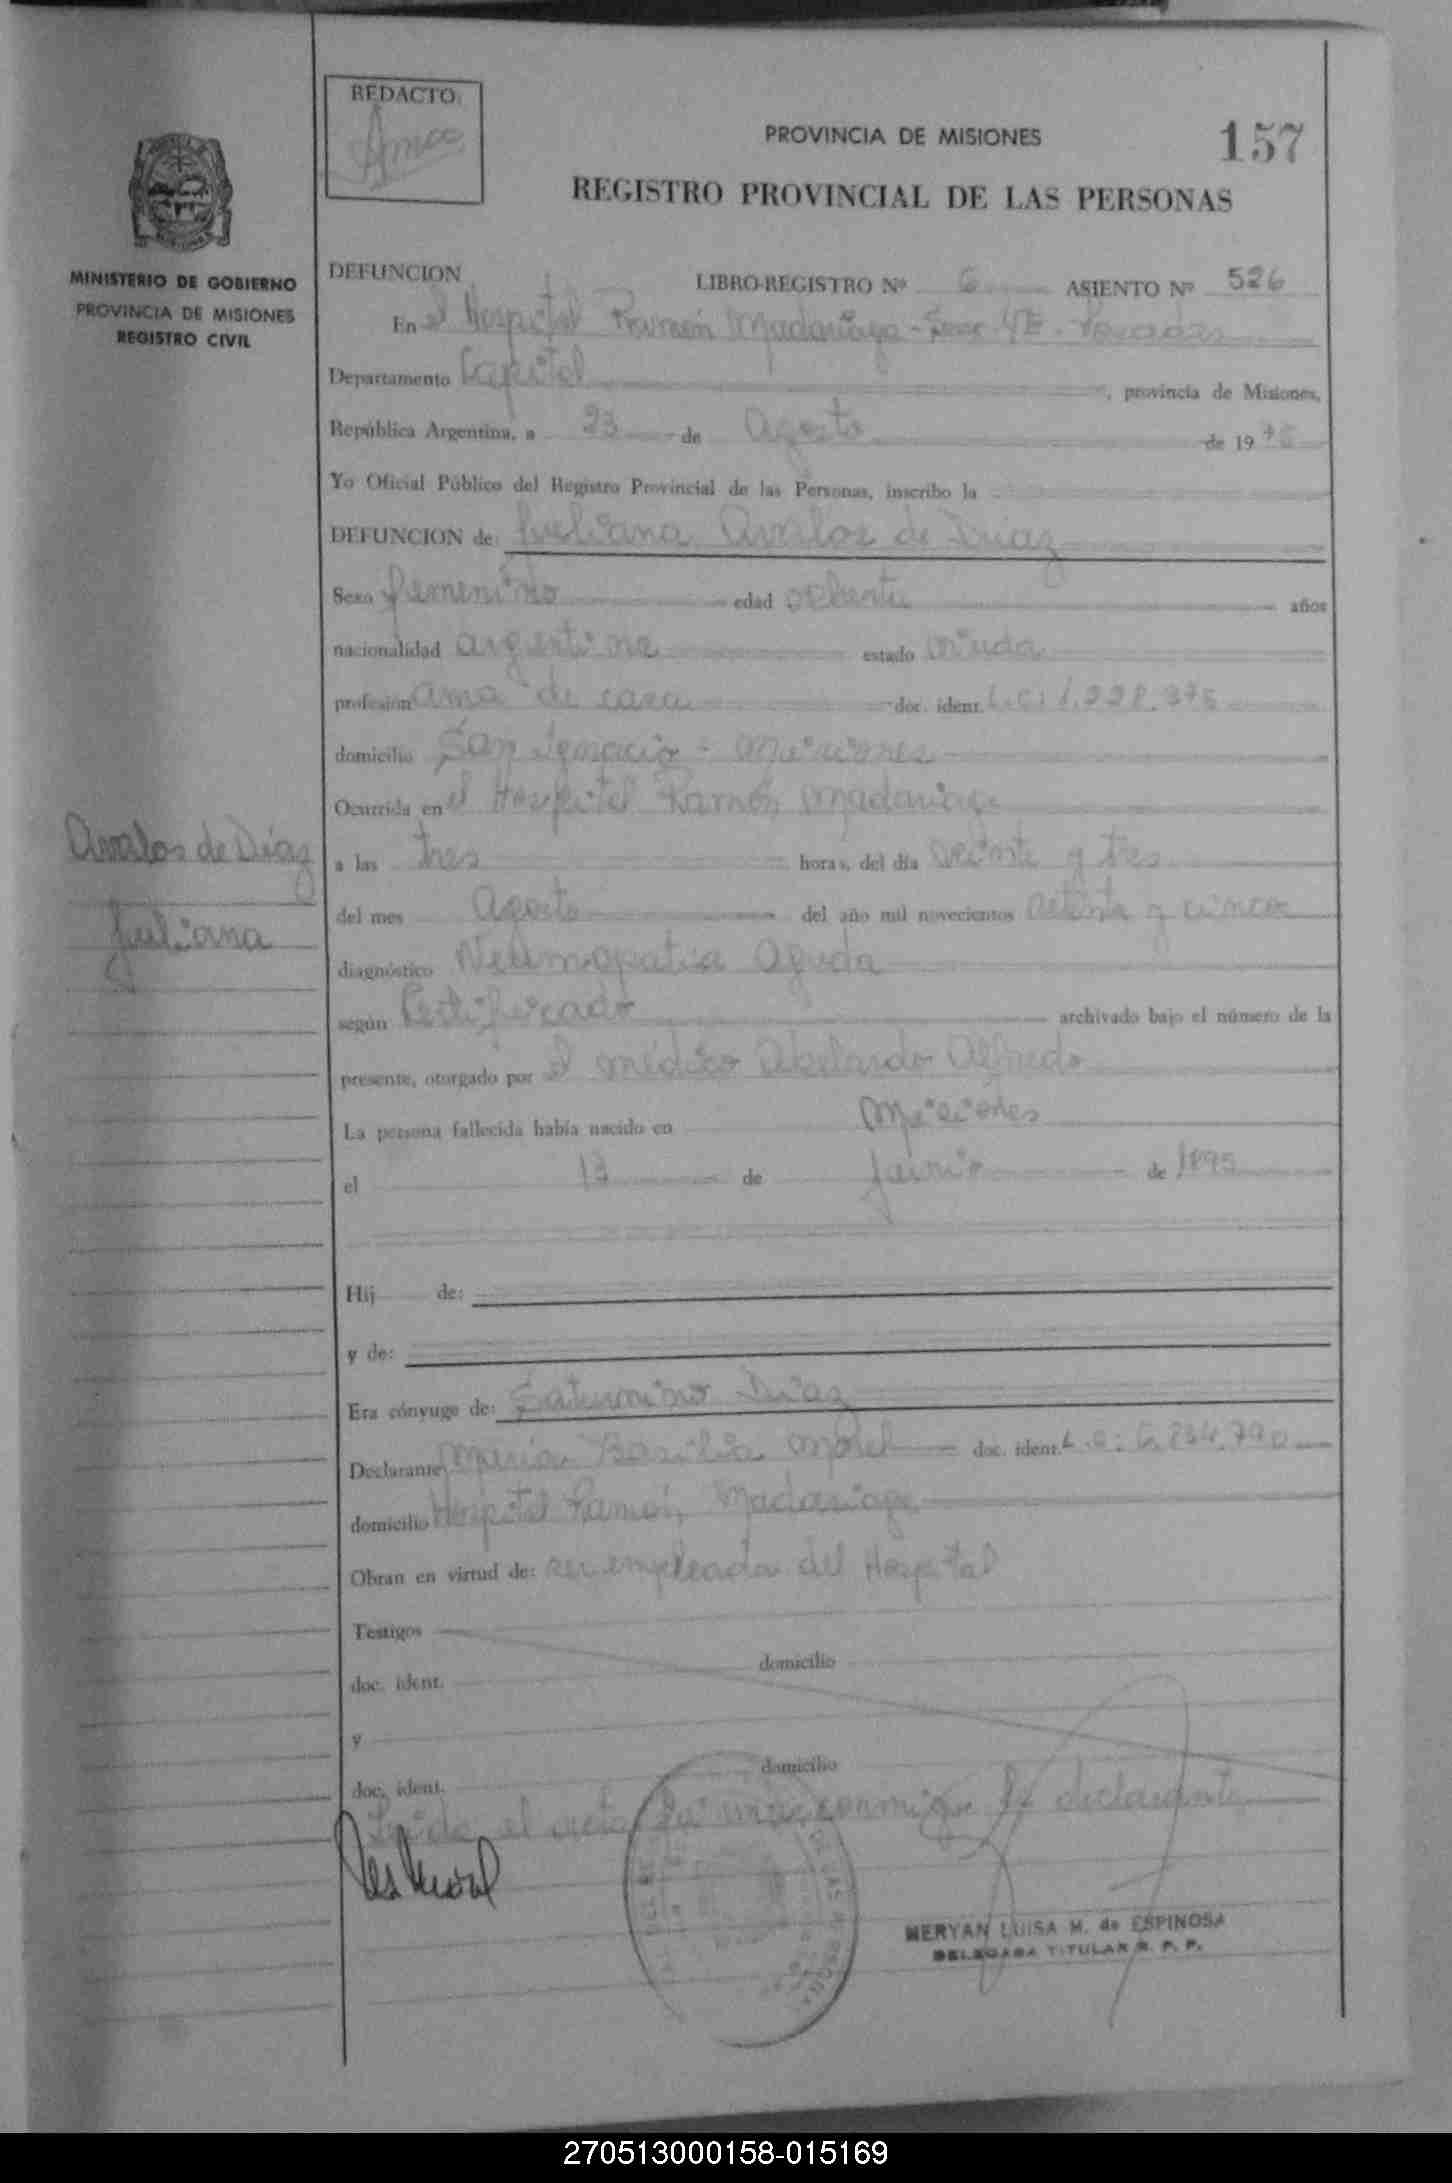 REDACTO:
PROVINCIA DE MISIONES
157
REGISTRO PROVINCIAL DE LAS PERSONAS
MINISTERIO DE GOBIERNO
PROVINCIA DE MISIONES
REGISTRO CIVIL
DEFUNCION
LIBRO-REGISTRO Nº 6 ASIENTO Nº 526
En el Hospital Ramón Madariaga - Posadas
Departamento Capital, provincia de Misiones,
República Argentina, a 23 de Agosto de 19 75
Yo Oficial Público del Registro Provincial de las Personas, inscribo la
DEFUNCION de: Juliana Avalos de Diaz
Sexo femenino edad ochenta años
nacionalidad argentina estado viuda
profesión ama de casa doc. ident. L.C.
domicilio San Ignacio - Misiones
Ocurrida en el Hospital Ramón Madariaga
a las tres horas, del día veinte y tres
del mes Agosto del año mil novecientos setenta y cinco
diagnóstico Neumopatia Aguda
según Certificado archivado bajo el número de la
presente, otorgado por el médico Abelardo Alfredo
La persona fallecida había nacido en Misiones
el 13 de junio de 1895
Hij de:
y de:
Era cónyuge de: Saturnino Diaz
Declarante Maria Basilia Morel doc. ident. L.C.
domicilio Hospital Ramón Madariaga
Obran en virtud de: ser empleada del Hospital
Testigos
domicilio
doc. ident.
y
domicilio
doc. ident.
Leida el acta la firma conmigo la declarante
Avalos de Diaz
Juliana
MERYAN LUISA M. de ESPINOSA
DELEGADA TITULAR R. P. P.
270513000158-015169